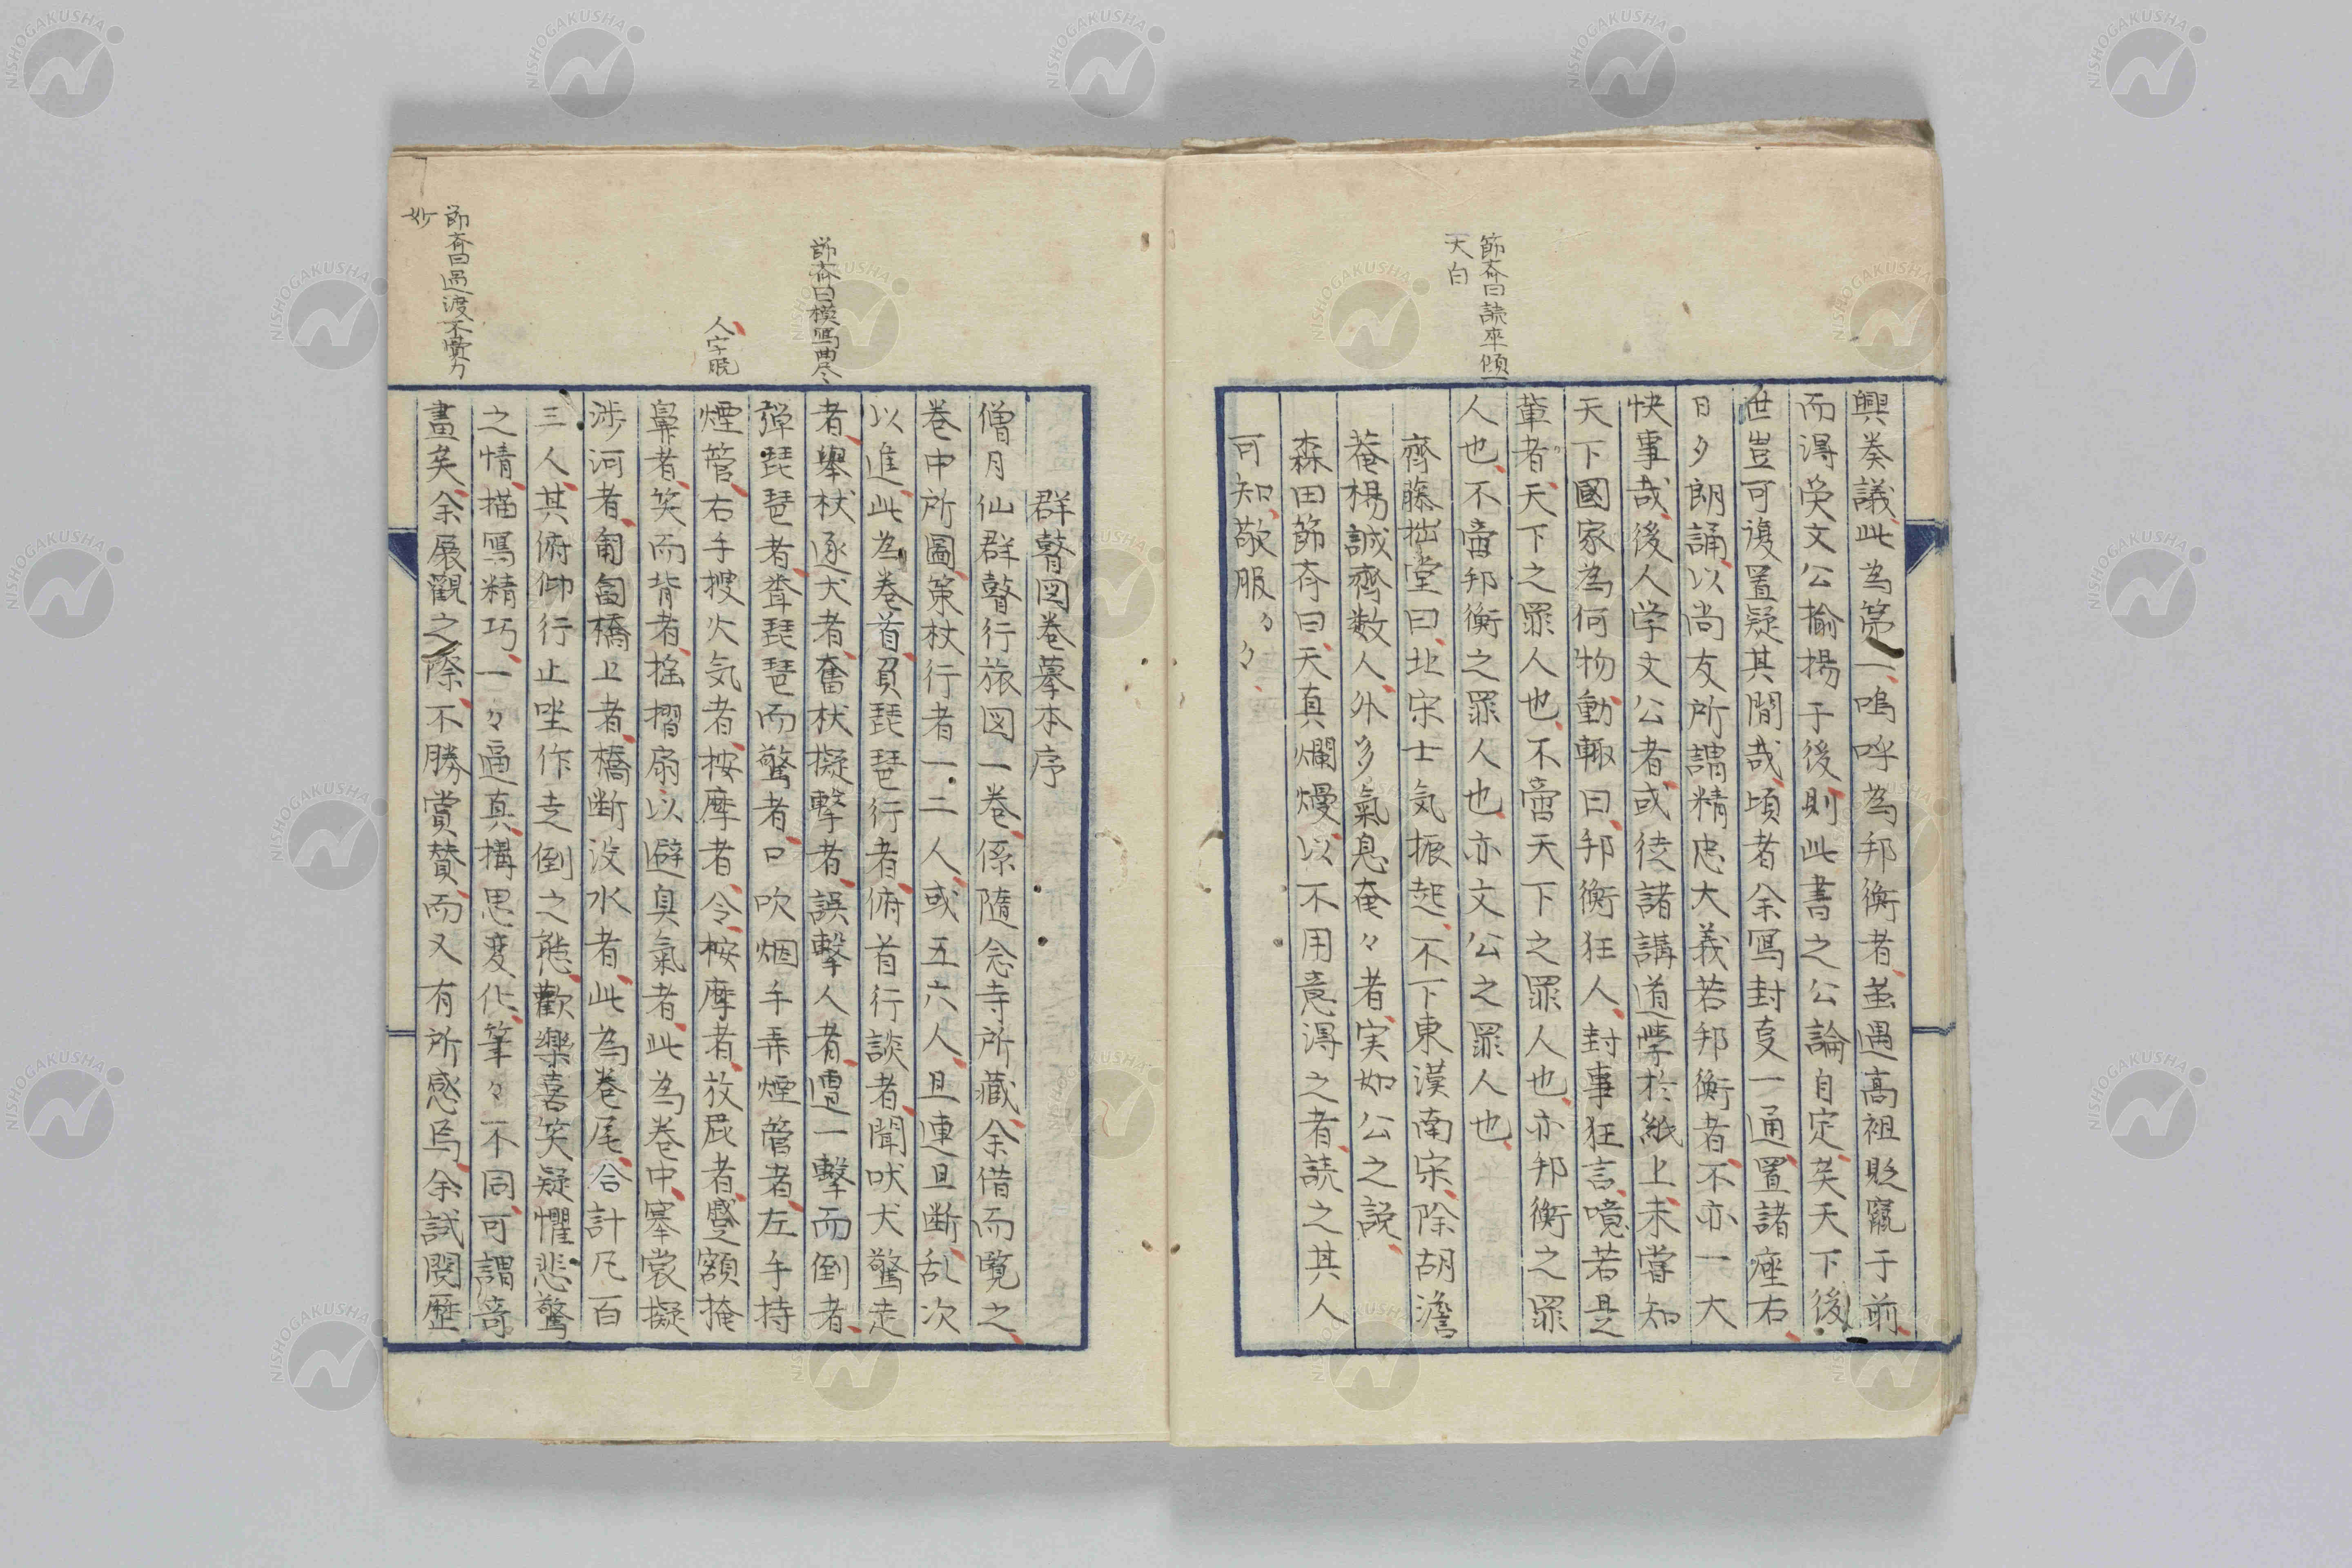 節斎曰読卒傾一
大白
興奏議此為第一嗚呼為邦衡者虽遇高祖貶竄于前
而得癸文公揄揚于後則此書之公論自定矣天下後
世豈可復置疑其間哉頃者余写封叓一通置諸座右
日夕朗誦以尚友所謂精忠大義若邦衡者不亦一大
快事哉後人学文公者或徒諸講道学於紙上未嘗知
天下國家為何物動輙曰邦衡狂人封事狂言噫若是
輩者天下之罪人也不啻天下之罪人也亦邦衡之罪
人也不啻邦衡之罪人也亦文公之罪人也
齊藤拙堂曰北宋士気振起不下東漢南宋除胡澹
菴楊誠齊数人外多氣息奄々者実如公之説
森田節斉曰天真爛熳以不用意得之者読之其人
可知敬服々々
節斎曰模写曲尽
人字眼
節斎曰過渡不費力
妙
群瞽図巻摹本序
僧月仙群瞽行旅図一巻係隨念寺所藏余借而覧之
巻中所圖策杖行者一二人或五六人且連且断乱次
以進此為巻首負琵琶行者俯首行談者聞吠犬驚走
者舉杖逐犬者奮杖擬擊者誤擊人者遭一擊而倒者
弾琵琶者聋琵琶而驚者口吹烟手弄煙管者左手持
煙管右手搜火気者按摩者令按摩者放屁者蹙額掩
鼻者笑而背者揺摺扇以避臭氣者此為巻中搴裳擬
渉河者匍匐橋上者橋断没水者此為巻尾合計凡百
三人其俯仰行止坐作走倒之態歡樂喜笑疑懼悲驚
之情描写精巧一々逼真搆思変化筆々不同可謂竒
畫矣余展觀之際不勝賞賛而又有所感焉余試閲歴